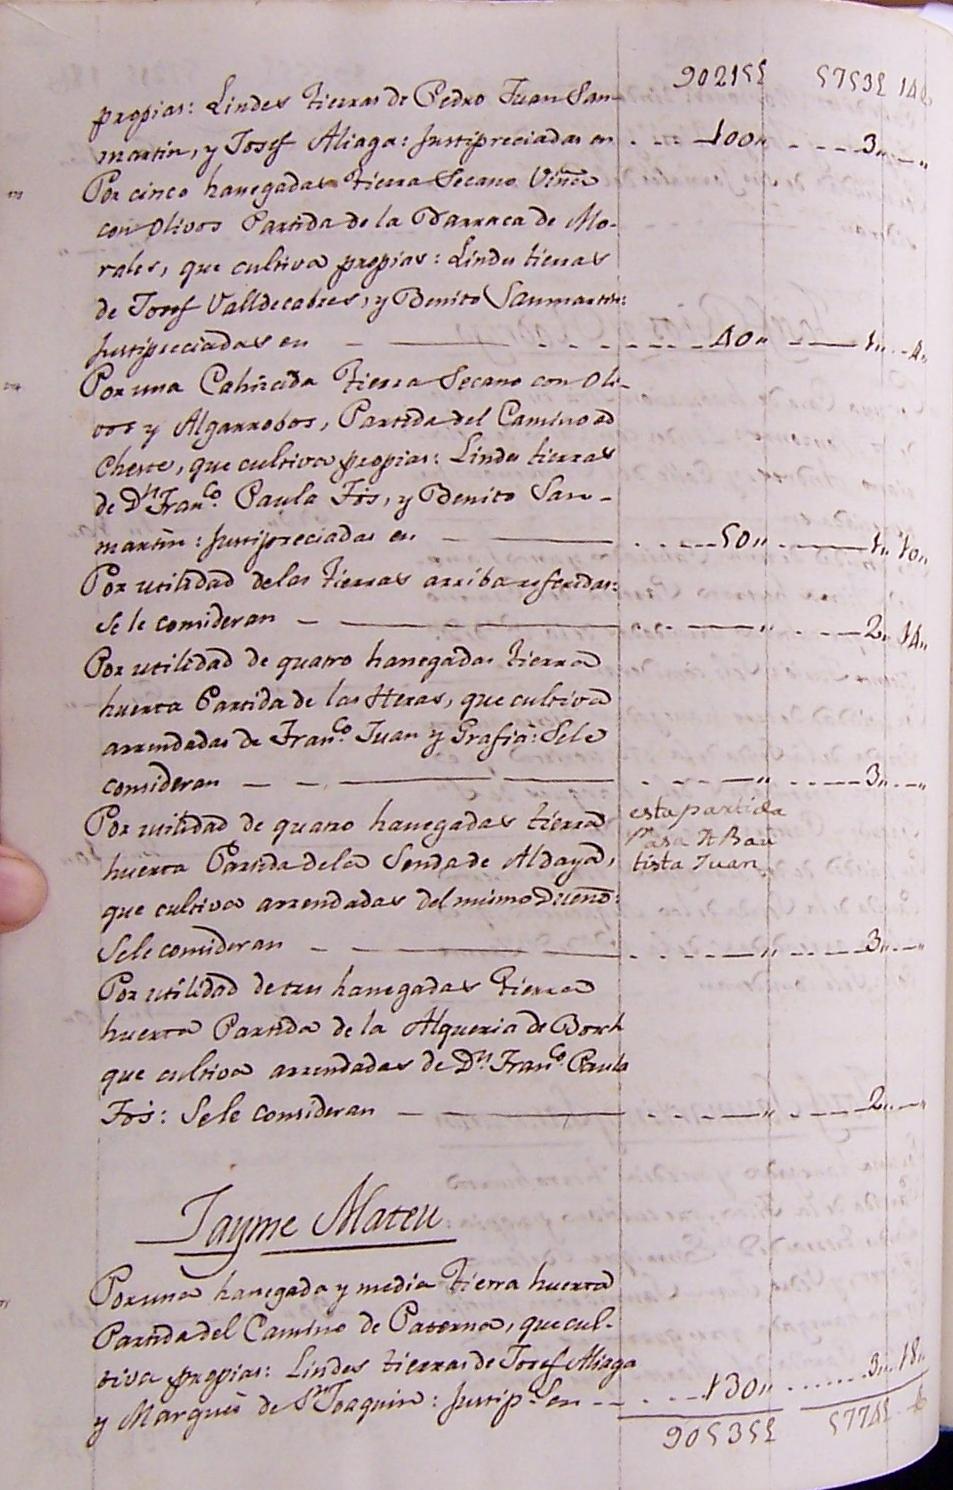 90215£ 5753£ 14
propias: Lindes tierras de Pedro Juan San-
martin, y Josef Aliaga: Justipreciadas en 100,, 3,,
Por cinco hanegadas tierra Secano Viña
con Olivos Partida de la Barraca de Mo-
rales, que cultiva propias: Lindes tierras
de Josef Valldecabres, y Benito Sanmartin:
Justipreciadas en 40,, 1,, 4,,
Por una Cahizada tierra Secano con Oli-
vos y Algarrobos, Partida del Camino de
Cheste, que cultiva propias: Lindes tierras
de Dn. Franco. Paula Fòs, y Benito San-
martin: Justipreciadas en 50,, 1,, 10,,
Por utilidad de las tierras arriba referidas:
Se le consideran ,, 2,, 14,,
Por utilidad de quatro hanegadas tierra
huerta Partida de las Heras, que cultiva
arrendadas de Franco. Juan y Grafiá: Se le
consideran ,, 3,,
Por utilidad de quatro hanegadas tierra
esta partida
huerta Partida de la Senda de Aldaya,
pasa A Bau
tista Juan
que cultiva arrendadas del mismo Dueño:
Se le consideran ,, 3,,
Por utilidad de tres hanegadas tierra
huerta Partida de la Alqueria de Bosch
que cultiva arrendadas de Dn. Franco. Paula
Fòs: Se le consideran ,, 2,,
Jayme Mateu
Por una hanegada y media tierra huerta
Partida del Camino de Paterna, que cul-
tiva propias: Lindes tierras de Josef Aliaga
y Marquès de Sn. Joaquin: Justips. en 130,, 3,, 18,,
90535£ 5774£ 6